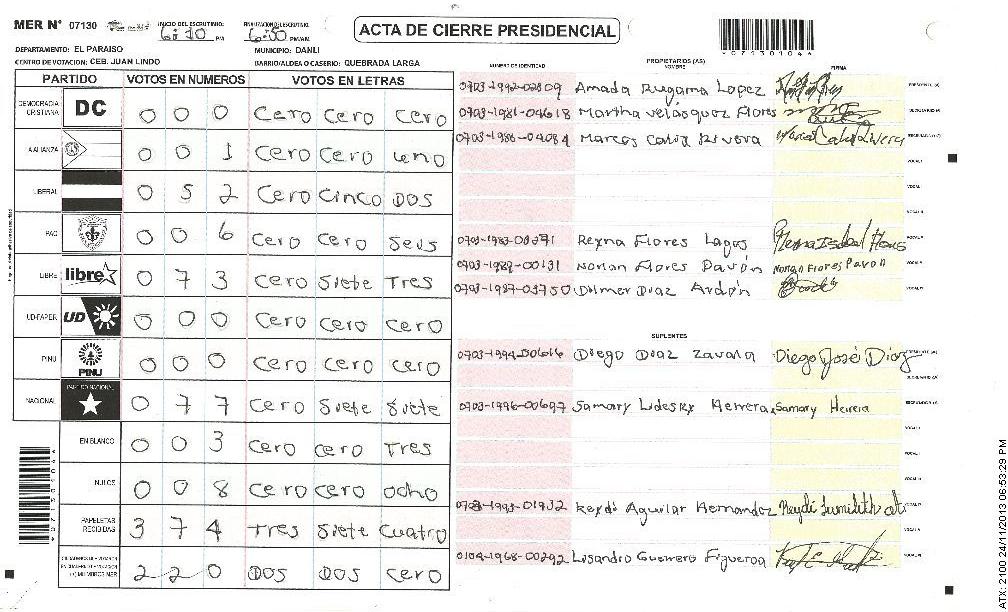 MER N° 07130
INICIO DEL ESCRUTINIO: 6:10 PM
FINALIZACION DEL ESCRUTINIO: 6:50 PM/AM
ACTA DE CIERRE PRESIDENCIAL
07131044
DEPARTAMENTO: EL PARAISO
MUNICIPIO: DANLI
CENTRO DE VOTACION: CEB. JUAN LINDO
BARRIO/ALDEA O CASERIO: QUEBRADA LARGA
PARTIDO VOTOS EN NUMEROS VOTOS EN LETRAS
DEMOCRACIA CRISTIANA DC 0 0 0 Cero Cero Cero
ALIANZA 0 0 1 Cero Cero uno
LIBERAL 0 5 2 Cero Cinco Dos
PAC 0 0 6 Cero Cero Seis
LIBRE libre 0 7 3 Cero Siete Tres
UD-FAPER UD 0 0 0 Cero Cero Cero
PINU PINU 0 0 0 Cero Cero Cero
NACIONAL PARTIDO NACIONAL 0 7 7 Cero Siete Siete
EN BLANCO 0 0 3 Cero Cero Tres
NULOS 0 0 8 Cero Cero ocho
PAPELETAS RECIBIDAS 3 7 4 Tres Siete Cuatro
2 2 0 Dos Dos Cero
NUMERO DE IDENTIDAD PROPIETARIOS (AS) NOMBRE FIRMA
Amada Rugama Lopez
0703-1981-04618 Martha Velásquez Flores
0703-1986-04084 Marcos Rivera
0703-1983-00371 Reyna Flores Lagos
0703-1989-00131 Norman Flores Pavón Norman Flores Pavon
0703-1987-03750 Dilmer Diaz Ardón
SUPLENTES
0703-1994-00616 Diego Diaz Zavala Diego José Díaz
0703-1996-00697 Samary Lidesky Herrera Samary Herrera
0703-1993-01932 Keydi Aguilar Hernandez
0704-1968-00292 Lisandro Guerrero Figueroa
ATX: 2100 24/11/2013 06:53:29 PM